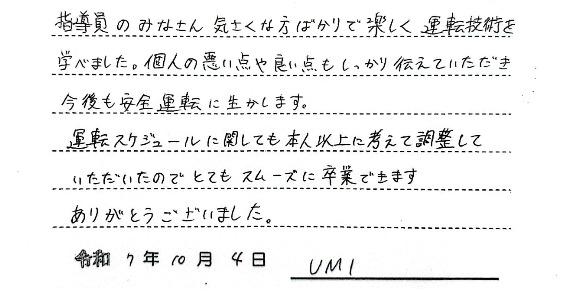 指導員のみなさん気さくな方ばかりで楽しく運転技術を
学べました。個人の悪い点や良い点もしっかり伝えていただき
今後も安全運転に生かします。
運転スケジュールに関しても本人以上に考えて調整して
いただいたのでとてもスムーズに卒業できます
ありがとうございました。
令和7年10月4日 UMI